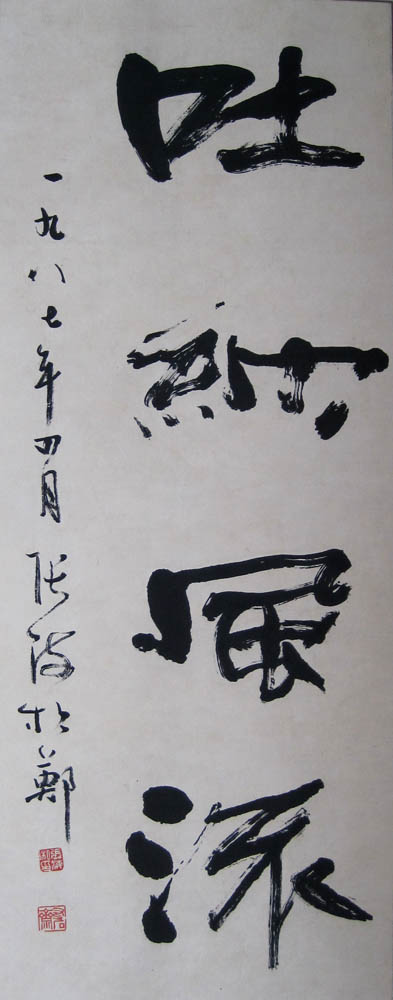 吐納風派
一九八七年四月張海於鄭